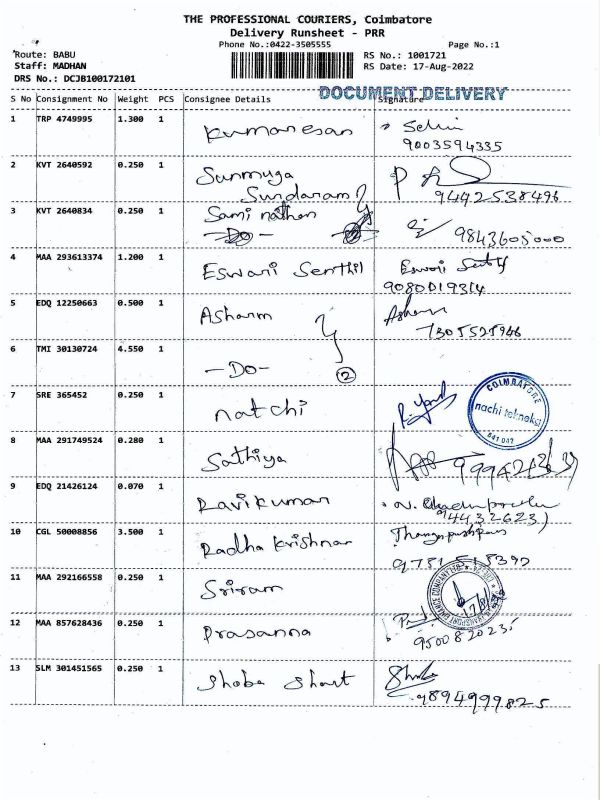 THE PROFESSIONAL COURIERS, Coimbatore
Delivery Runsheet - PRR
Phone No.:0422-3505555
Page No.:1
Route: BABU
RS No.: 1001721
Staff: MADHAN
RS Date: 17-Aug-2022
DRS No.: DCJB100172101
DOCUMENT DELIVERY
S No Consignment No Weight PCS Consignee Details Signature
1 TRP 4749995 1.300 1 Kumaresan Selvi
9003594335
2 KVT 2640592 0.250 1 Sunmuga
Sundaram 9442538496
3 KVT 2640834 0.250 1 Saminathan
-Do- 9843605000
4 MAA 293613374 1.200 1 Eswari Senthil Eswari
9080019314
5 EDQ 12250663 0.500 1 Asharm
7305525946
6 TMI 30130724 4.550 1
-Do- 2
7 SRE 365452 0.250 1 natchi COIMBATORE
nachi tekneksi
641 047
8 MAA 291749524 0.280 1 Sathiya
9 EDQ 21426124 0.070 1 Ravikumar
10 CGL 50008856 3.500 1 Radha Krishnan
11 MAA 292166558 0.250 1 Sriram
12 MAA 857628436 0.250 1 Prasanna
9500820235
13 SLM 301451565 0.250 1 Shoba Shart
9894999825